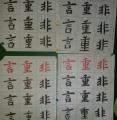 言重非 言重非
言重非 言重非
言重非 言重非
言重非 言重非
言重非 言重非
言重非 言重非
言重非 言重非